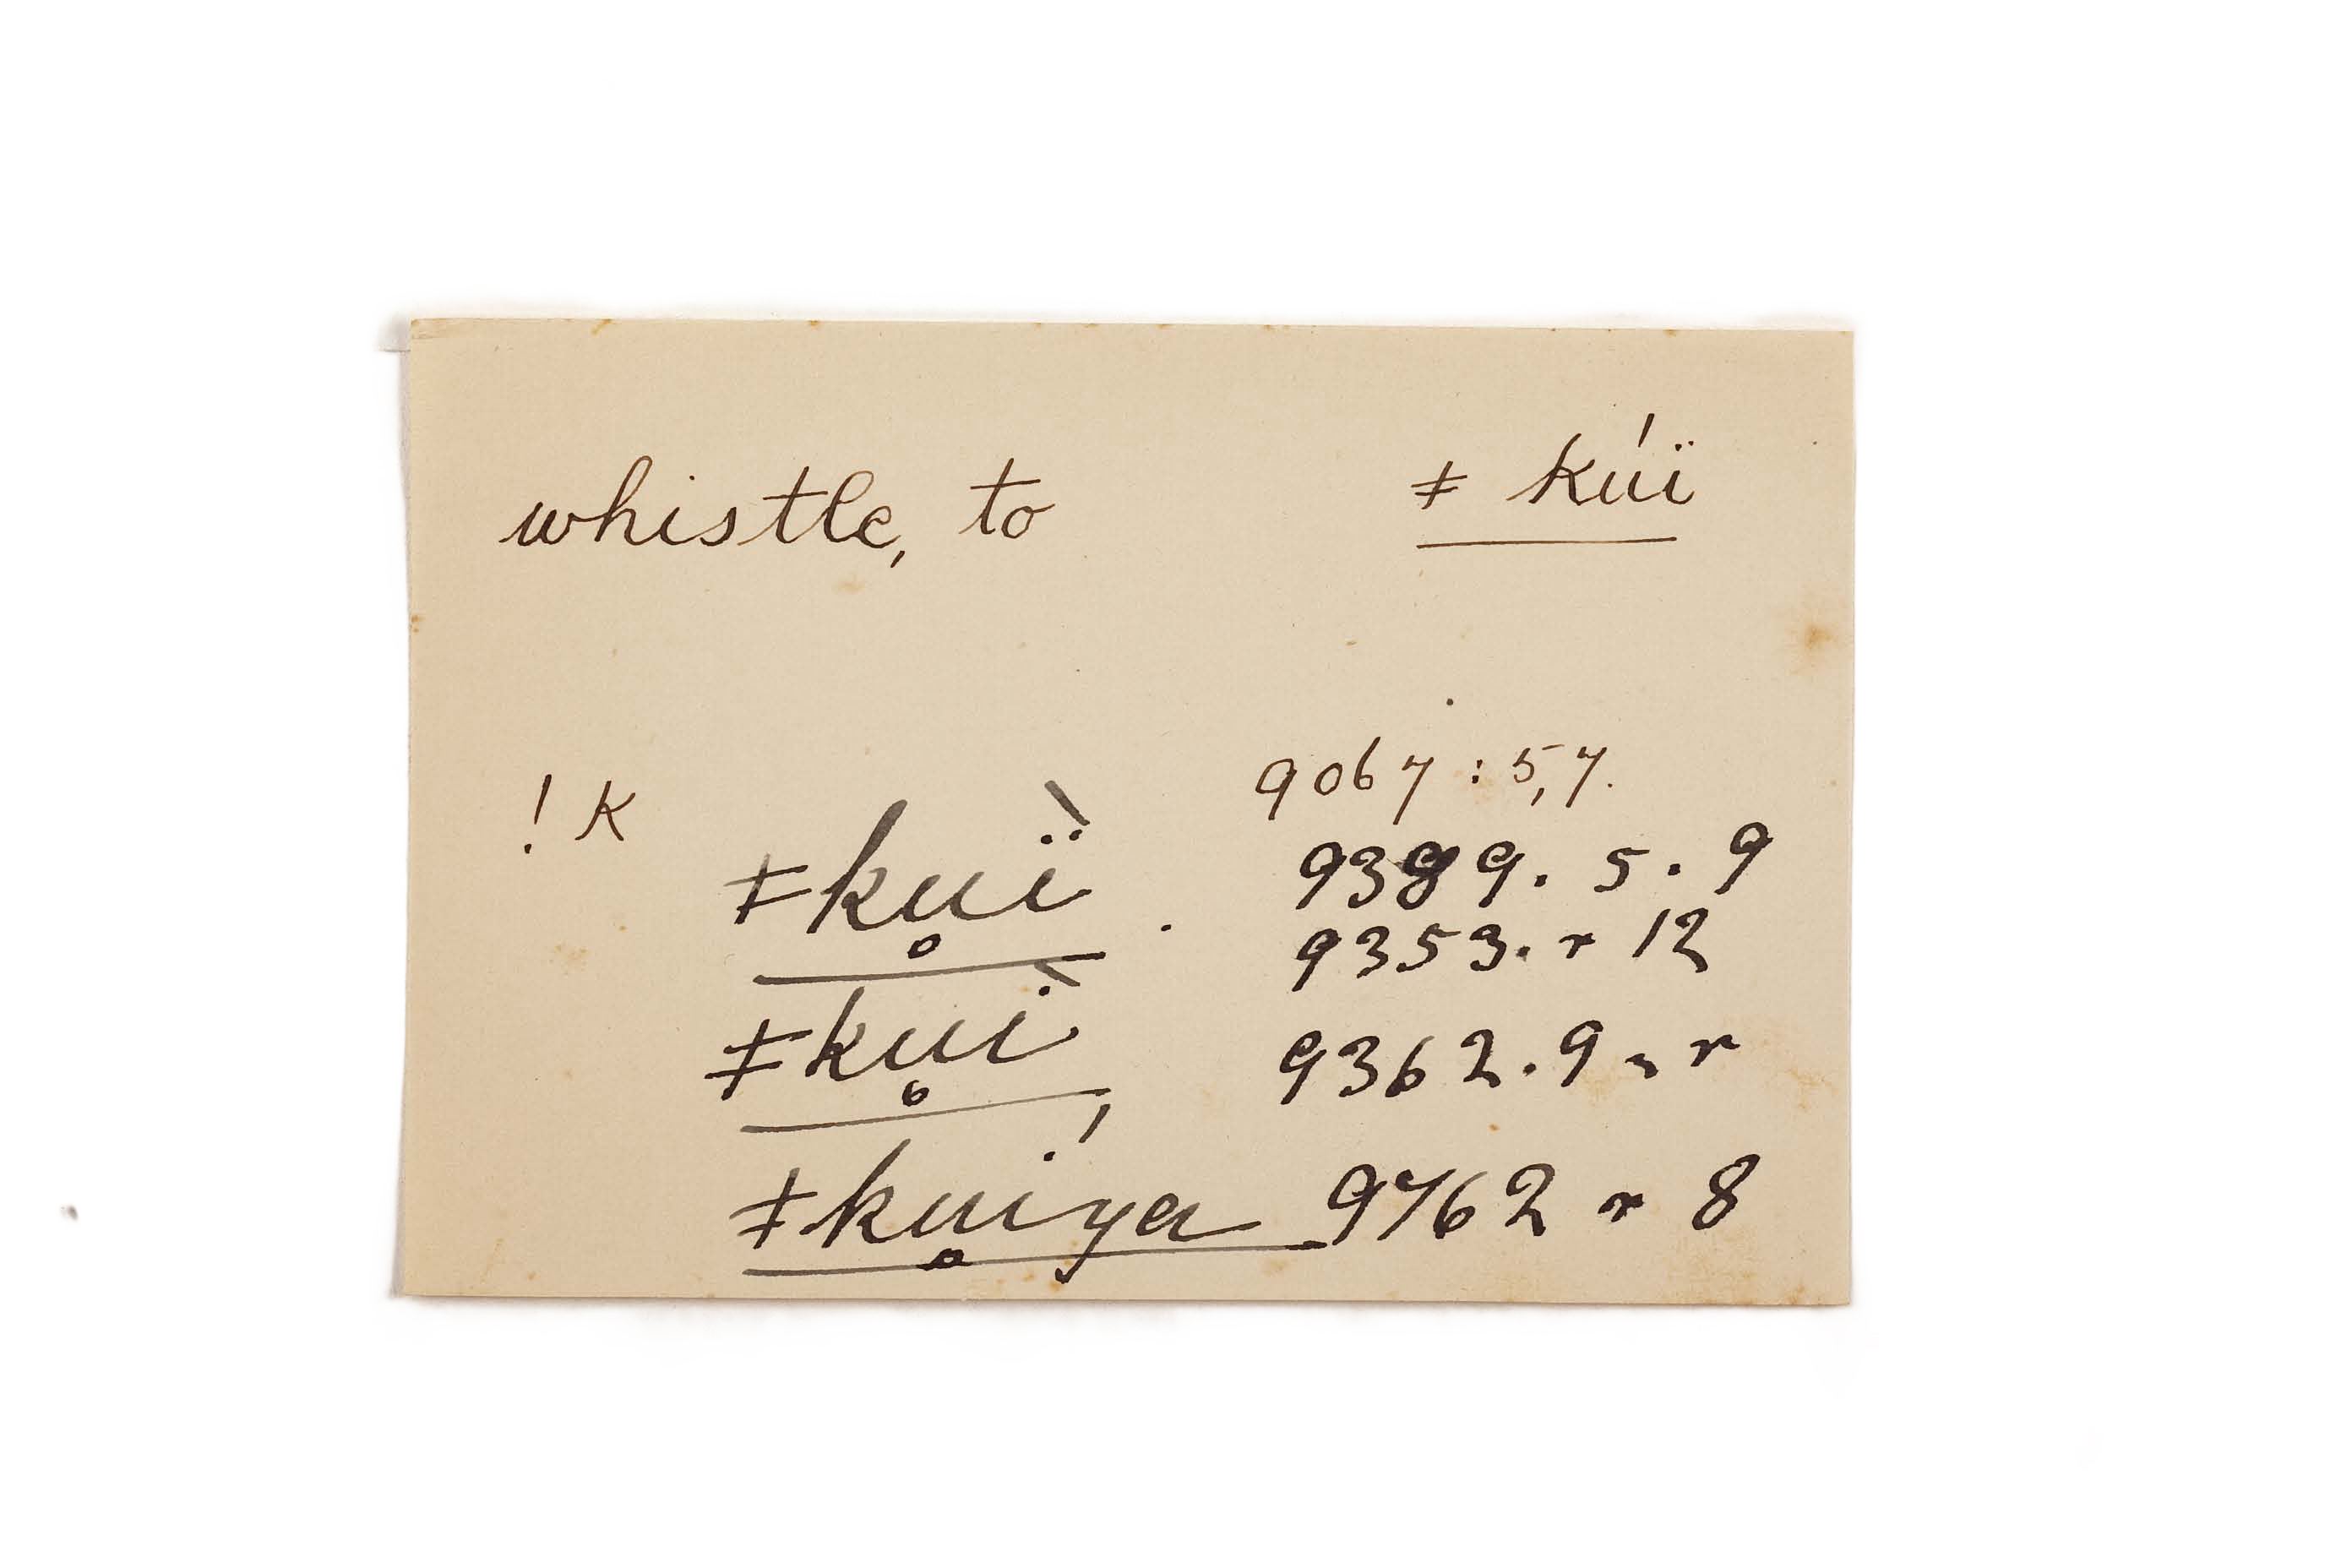 whistle, to ǂ kúï
9067 : 5,7.
! K ǂku̥ï̀ . 9389. 5. 9
9353. r 12
ǂku̥ì 9362. 9 r
ǂku̥íya 9762 r 8